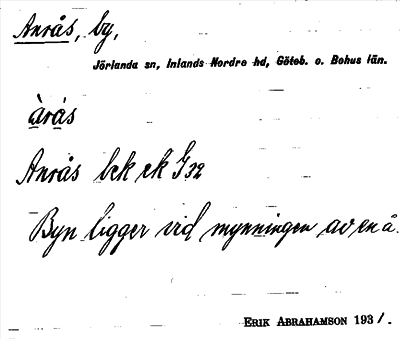 Anrås, by,
Jörlanda sn, Inlands Nordre hd, Göteb. o. Bohus län.
àrås
Anrås bek ek J 32
Byn ligger vid mynningen av en å.
ERIK ABRAHAMSON 1931.